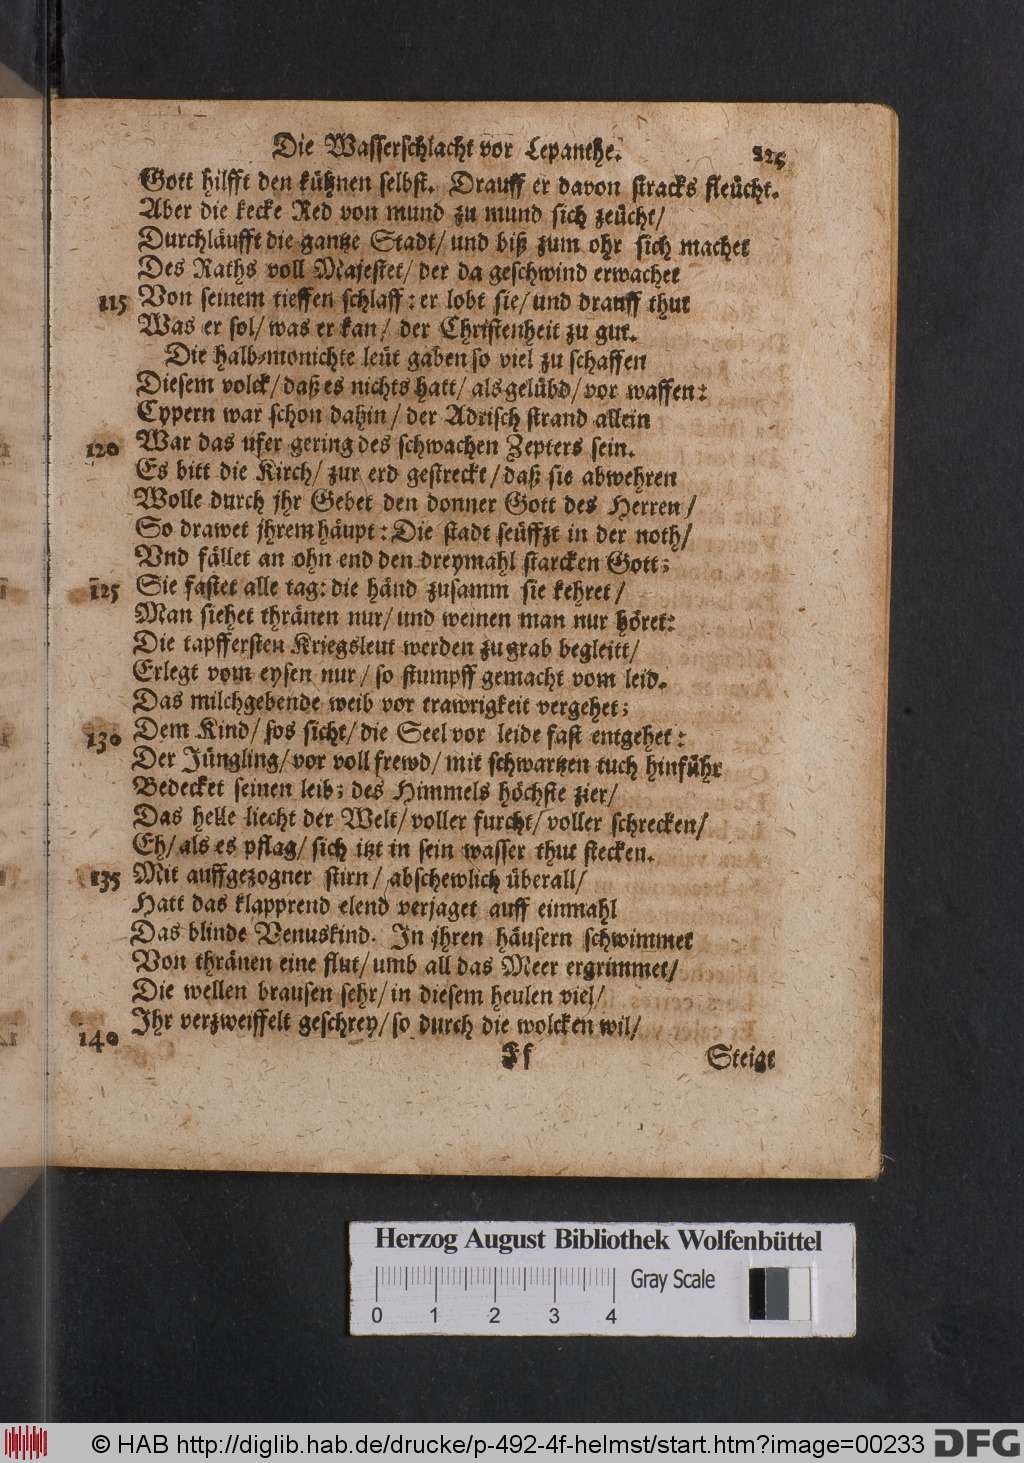 Die Wasserschlacht vor Lepanthe. 225
Gott hilfft den kühnen selbst. Drauff er davon stracks fleücht.
Aber die kecke Red von mund zu mund sich zeücht/
Durchläufft die gantze Stadt/ und biß zum ohr sich machet
Des Raths voll Majestet/ der da geschwind erwachet
115 Von seinem tieffen schlaff: er lobt sie/ und drauff thut
Was er sol/ was er kan/ der Christenheit zu gut.
Die halb-monichte leüt gaben so viel zu schaffen
Diesem volck/ daß es nichts hatt/ als gelübd/ vor waffen:
Cypern war schon dahin/ der Adrisch strand allein
120 War das ufer gering des schwachen Zepters sein.
Es bitt die Kirch/ zur erd gestreckt/ daß sie abwehren
Wolle durch jhr Gebet den donner Gott des Herren/
So drawet jhrem häupt: Die stadt seüffzt in der noth/
Vnd fället an ohn end den dreymahl starcken Gott;
125 Sie fastet alle tag: die händ zusamm sie kehret/
Man siehet thränen nur/ und weinen man nur höret:
Die tapffersten Kriegsleut werden zu grab begleitt/
Erlegt vom eysen nur/ so stumpff gemacht vom leid.
Das milchgebende weib vor trawrigkeit vergehet;
130 Dem Kind/ sos sicht/ die Seel vor leide fast entgehet:
Der Jüngling/ vor voll frewd/ mit schwartzen tuch hinführ
Bedecket seinen leib; des Himmels höchste zier/
Das helle liecht der Welt/ voller furcht/ voller schrecken/
Eh/ als es pflag/ sich itzt in sein wasser thut stecken.
135 Mit auffgezogner stirn/ abschewlich überall/
Hatt das klapprend elend verjaget auff einmahl
Das blinde Venuskind. In jhren häusern schwimmet
Von thränen eine flut/ umb all das Meer ergrimmet/
Die wellen brausen sehr/ in diesem heulen viel/
140 Ihr verzweiffelt geschrey/ so durch die wolcken wil/
Ff Steigt
Herzog August Bibliothek Wolfenbüttel
Gray Scale
0 1 2 3 4
© HAB http://diglib.hab.de/drucke/p-492-4f-helmst/start.htm?image=00233 DFG